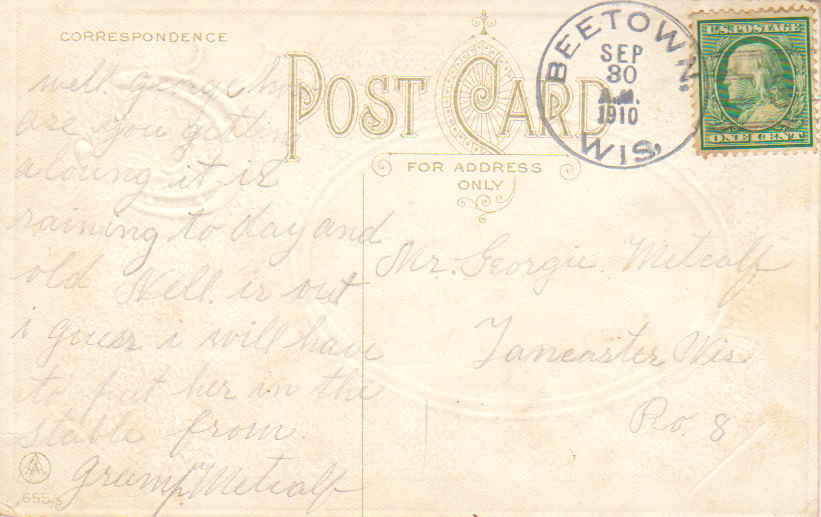 CORRESPONDENCE
POST CARD
FOR ADDRESS
ONLY
BEETOWN,
SEP
30
A.M.
1910
WIS.
U.S. POSTAGE
ONE CENT
well george how
are you getting
aloung it is
raining to day and
old Nell is out
i guess i will have
to put her in the
stable from
Metcalf
Mr. Georgie Metcalf
Lancaster Wis
Ro. 8